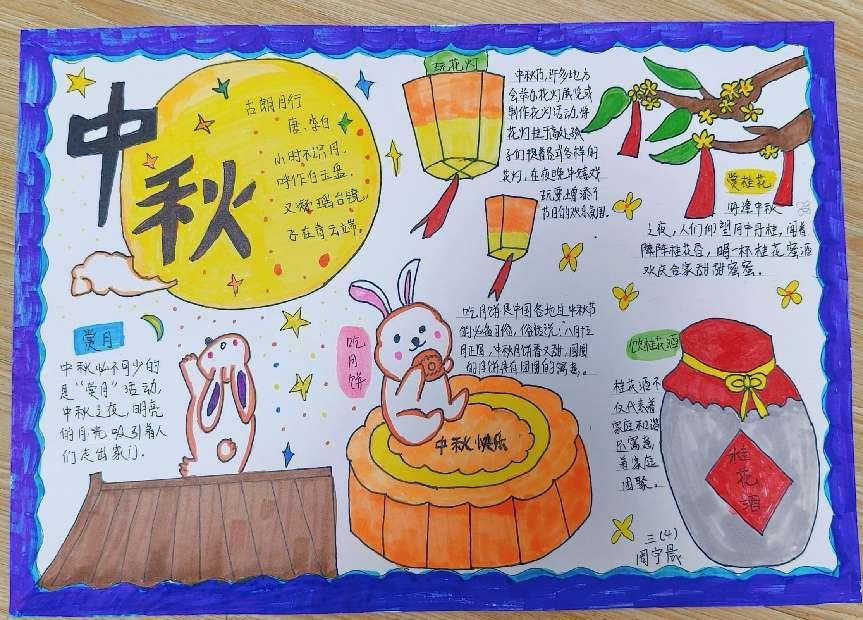 中
秋
古朗月行
唐:李白
小时不识月,
呼作白玉盘。
又疑瑶台镜,
飞在青云端。
玩花灯
中秋节,许多地方
会举办花灯展览或
制作花灯活动,将
花灯挂于高处,孩
子们提着各式各样的
花灯,在夜晚中嬉戏
玩耍增添了
节日的欢乐氛围。
赏桂花
每逢中秋
之夜,人们仰望月中丹桂,闻着
阵阵桂花香,喝一杯桂花蜜酒
欢庆合家甜甜蜜蜜。
赏月
中秋必不可少的
是“赏月”活动,
中秋之夜,明亮
的月亮吸引着人
们走出家门。
吃月饼
吃月饼是中国各地过中秋节
的必备习俗,俗话说:“八月十五
月正圆,中秋月饼香又甜,圆圆
的月饼具有团圆的寓意。
中秋快乐
饮桂花酒
桂花酒不
仅代表着
家庭和谐
还寓意
着家庭
团聚。
桂花酒
三(4)
周宇晨